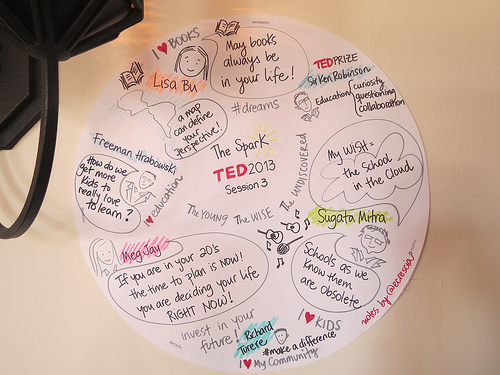 I ♥ BOOKS
May books
always be
in your life!
Lisa Bu
a map
can define
your
perspective!
#dreams
TEDPRIZE
Sir Ken Robinson
Education
curiosity
questioning
collaboration
The Spark
TED2013
Session 3
The YOUNG The WISE The UNDISCOVERED
Freeman Hrabowski
How do we
get more
kids to
really love
to learn?
I ♥ education
My WISH =
the School
in the Cloud
Sugata Mitra
Schools as we
know them
are obsolete
Meg Jay
If you are in your 20's
the time to plan is NOW!
you are deciding your life
RIGHT NOW!
invest in your
future!
Richard
Turere
I ♥ KIDS
#make a difference
I ♥ My Community